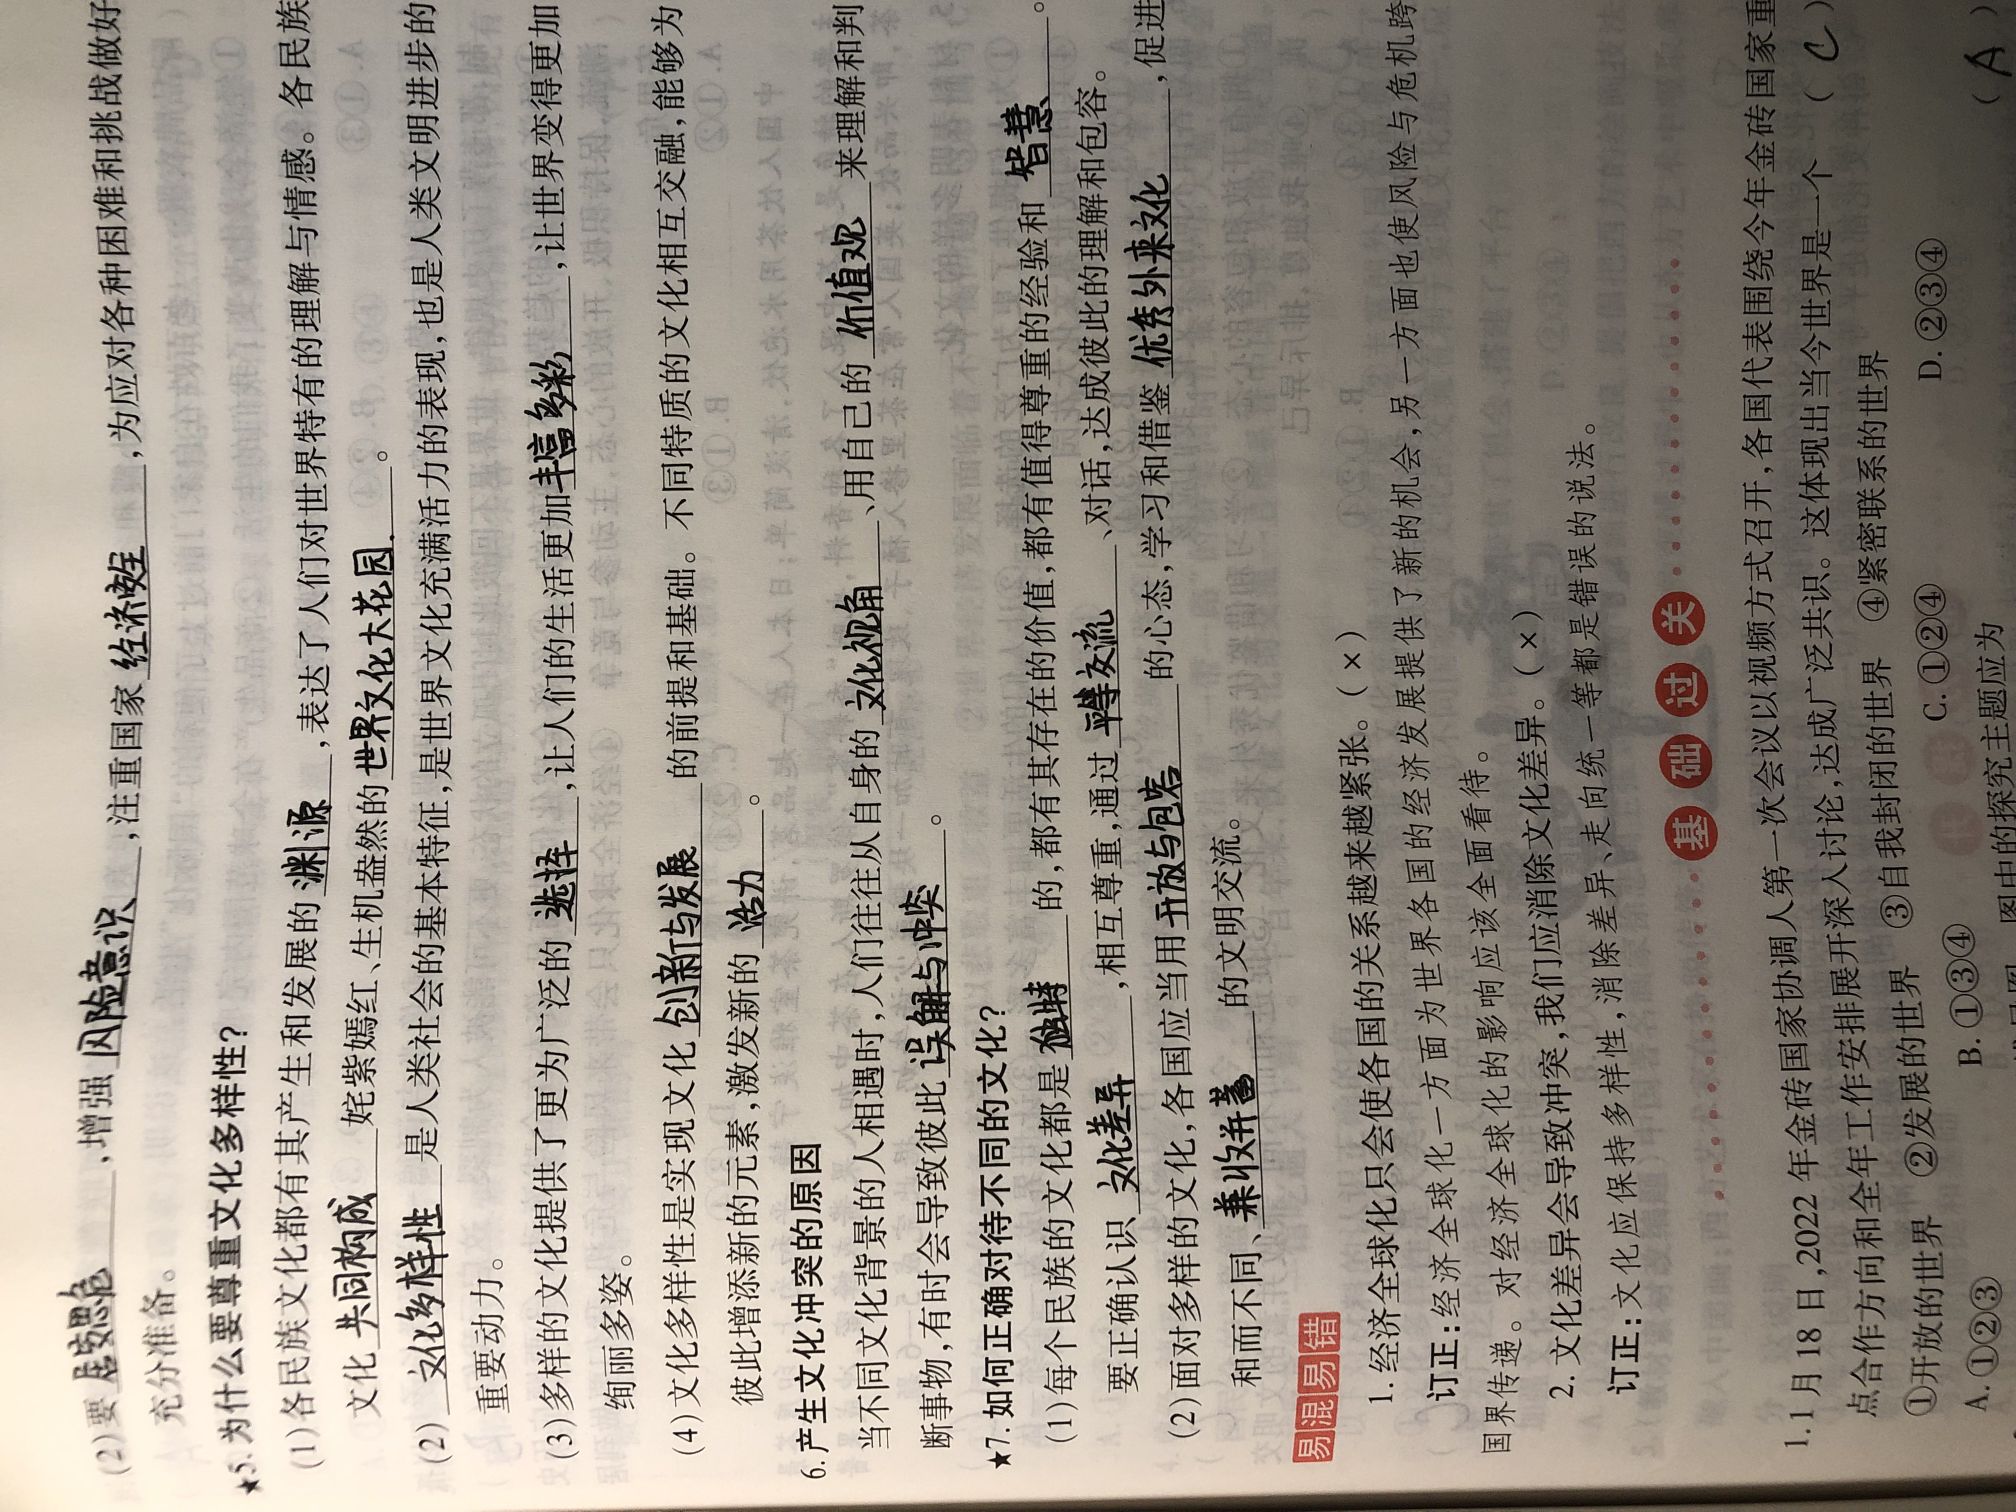 (2)要居安思危,增强风险意识,注重国家经济安全,为应对各种困难和挑战做好
充分准备。
★5.为什么要尊重文化多样性?
(1)各民族文化都有其产生和发展的渊源,表达了人们对世界特有的理解与情感。各民族
文化共同构成姹紫嫣红、生机盎然的世界文化大花园。
(2)文化多样性是人类社会的基本特征,是世界文化充满活力的表现,也是人类文明进步的
重要动力。
(3)多样的文化提供了更为广泛的选择,让人们的生活更加丰富多彩,让世界变得更加
绚丽多姿。
(4)文化多样性是实现文化创新与发展的前提和基础。不同特质的文化相互交融,能够为
彼此增添新的元素,激发新的活力。
6.产生文化冲突的原因
当不同文化背景的人相遇时,人们往往从自身的文化视角、用自己的价值观来理解和判
断事物,有时会导致彼此误解与冲突。
★7.如何正确对待不同的文化?
(1)每个民族的文化都是独特的,都有其存在的价值,都有值得尊重的经验和智慧。
要正确认识文化差异,相互尊重,通过平等交流、对话,达成彼此的理解和包容。
(2)面对多样的文化,各国应当用开放与包容的心态,学习和借鉴优秀外来文化,促进
和而不同、兼收并蓄的文明交流。
易混易错
1.经济全球化只会使各国的关系越来越紧张。(×)
订正:经济全球化一方面为世界各国的经济发展提供了新的机会,另一方面也使风险与危机跨
国界传递。对经济全球化的影响应该全面看待。
2.文化差异会导致冲突,我们应消除文化差异。(×)
订正:文化应保持多样性,消除差异、走向统一等都是错误的说法。
基础过关
1.1月18日,2022年金砖国家协调人第一次会议以视频方式召开,各国代表围绕今年金砖国家重
点合作方向和全年工作安排展开深入讨论,达成广泛共识。这体现出当今世界是一个 (C)
①开放的世界 ②发展的世界 ③自我封闭的世界 ④紧密联系的世界
A.①②③ B.①③④ C.①②④ D.②③④
图中的探究主题应为 (A)